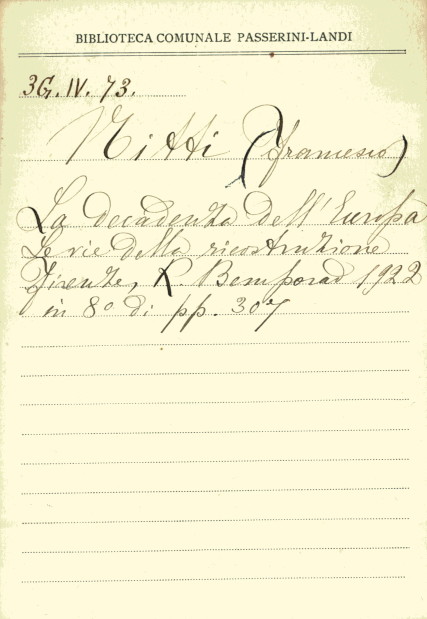 BIBLIOTECA COMUNALE PASSERINI-LANDI
3G.IV.73.
Nitti (Francesco)
La decadenza dell'Europa
Le vie della ricostruzione
Firenze, R. Bemporad 1922
in 8° di pp. 307